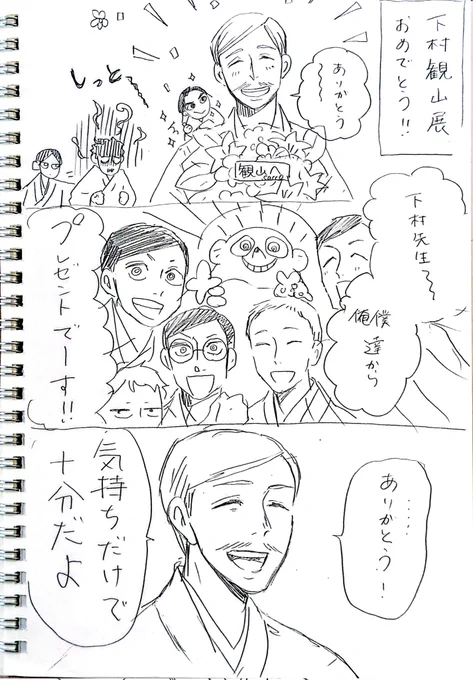 下村観山展
おめでとう!!
ありがとう
〜〜〜
観山へ
しっと〜〜
下村先生〜〜
僕
俺
達から
プレゼントでーす!!
……
ありがとう!
気持ちだけで
十分だよ